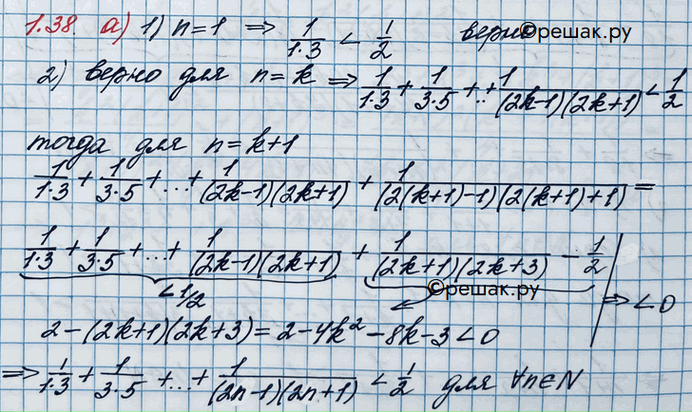 1.38. а) 1) n=1 ⇒ 1/(1·3) < 1/2 верно ©решак.ру
2) верно для n=k ⇒ 1/(1·3) + 1/(3·5) + ... + 1/((2k-1)(2k+1)) < 1/2
тогда для n=k+1
1/(1·3) + 1/(3·5) + ... + 1/((2k-1)(2k+1)) + 1/((2(k+1)-1)(2(k+1)+1)) =
1/(1·3) + 1/(3·5) + ... + 1/((2k-1)(2k+1)) + 1/((2k+1)(2k+3)) - 1/2 | ⇒ <0
<1/2 ©решак.ру
2-(2k+1)(2k+3) = 2-4k²-8k-3 <0
⇒ 1/(1·3) + 1/(3·5) + ... + 1/((2n-1)(2n+1)) < 1/2 для ∀n∈N